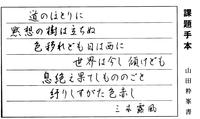 課題手本
山田幹峯書
道のほとりに
黙想の樹は立ちぬ
色移れども日は西に
世界は今し傾けども
息絶え果てしもののごと
祈りしすがた色赤し
三木露風